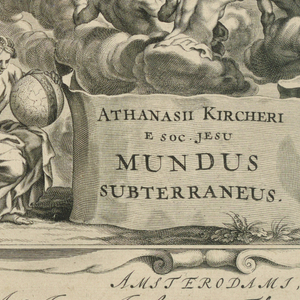 ATHANASII KIRCHERI
E SOC. JESU
MUNDUS
SUBTERRANEUS.
AMSTERODAMI,